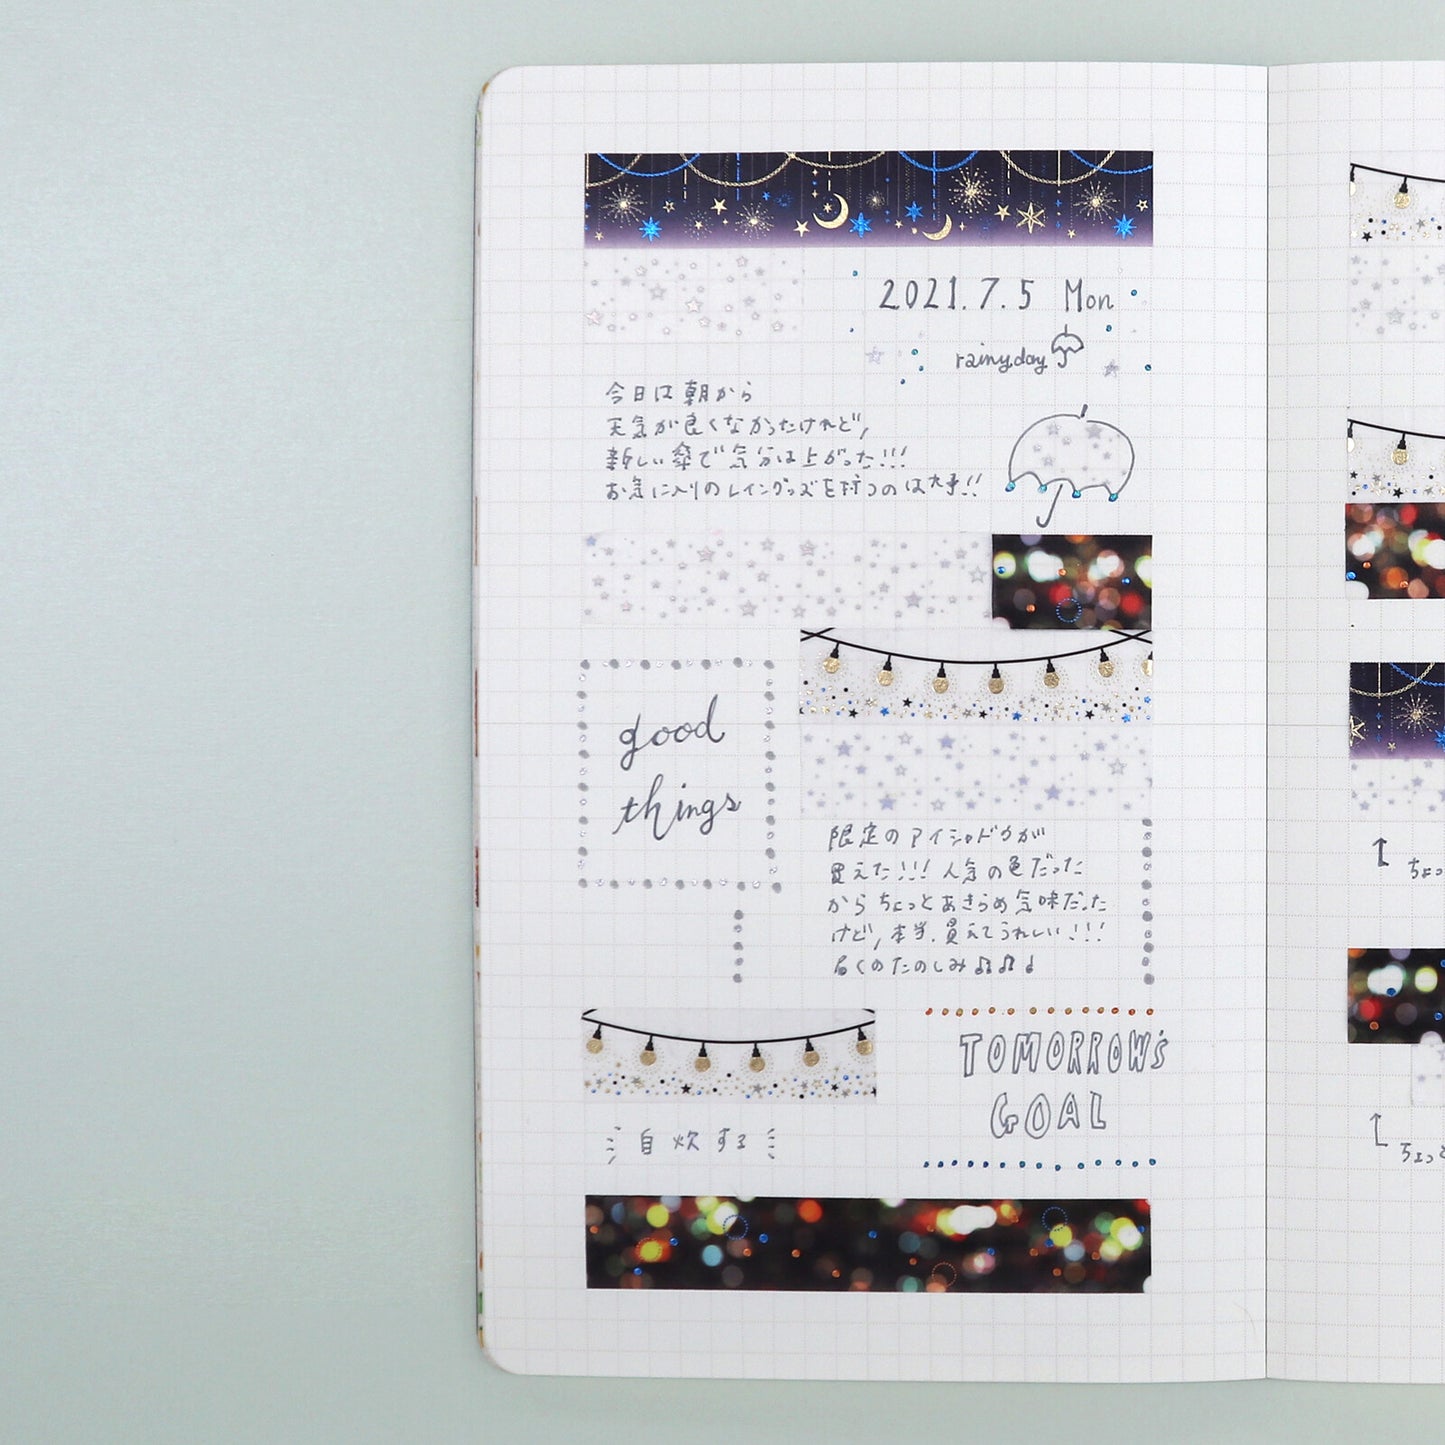 2021.7.5 Mon
rainy day
今日は朝から
天気が良くなかったけれど,
新しい傘で気分は上がった!!!
お気に入りのレイングッズを持つのは大事!!
good
things
限定のアイシャドウが
買えた!!! 人気の色だった
からちょっとあきらめ気味だった
けど,本当.買えてうれしい!!!
届くのたのしみ♫♫♩
TOMORROW'S
GOAL
自炊する
ちょっ
ちょっと